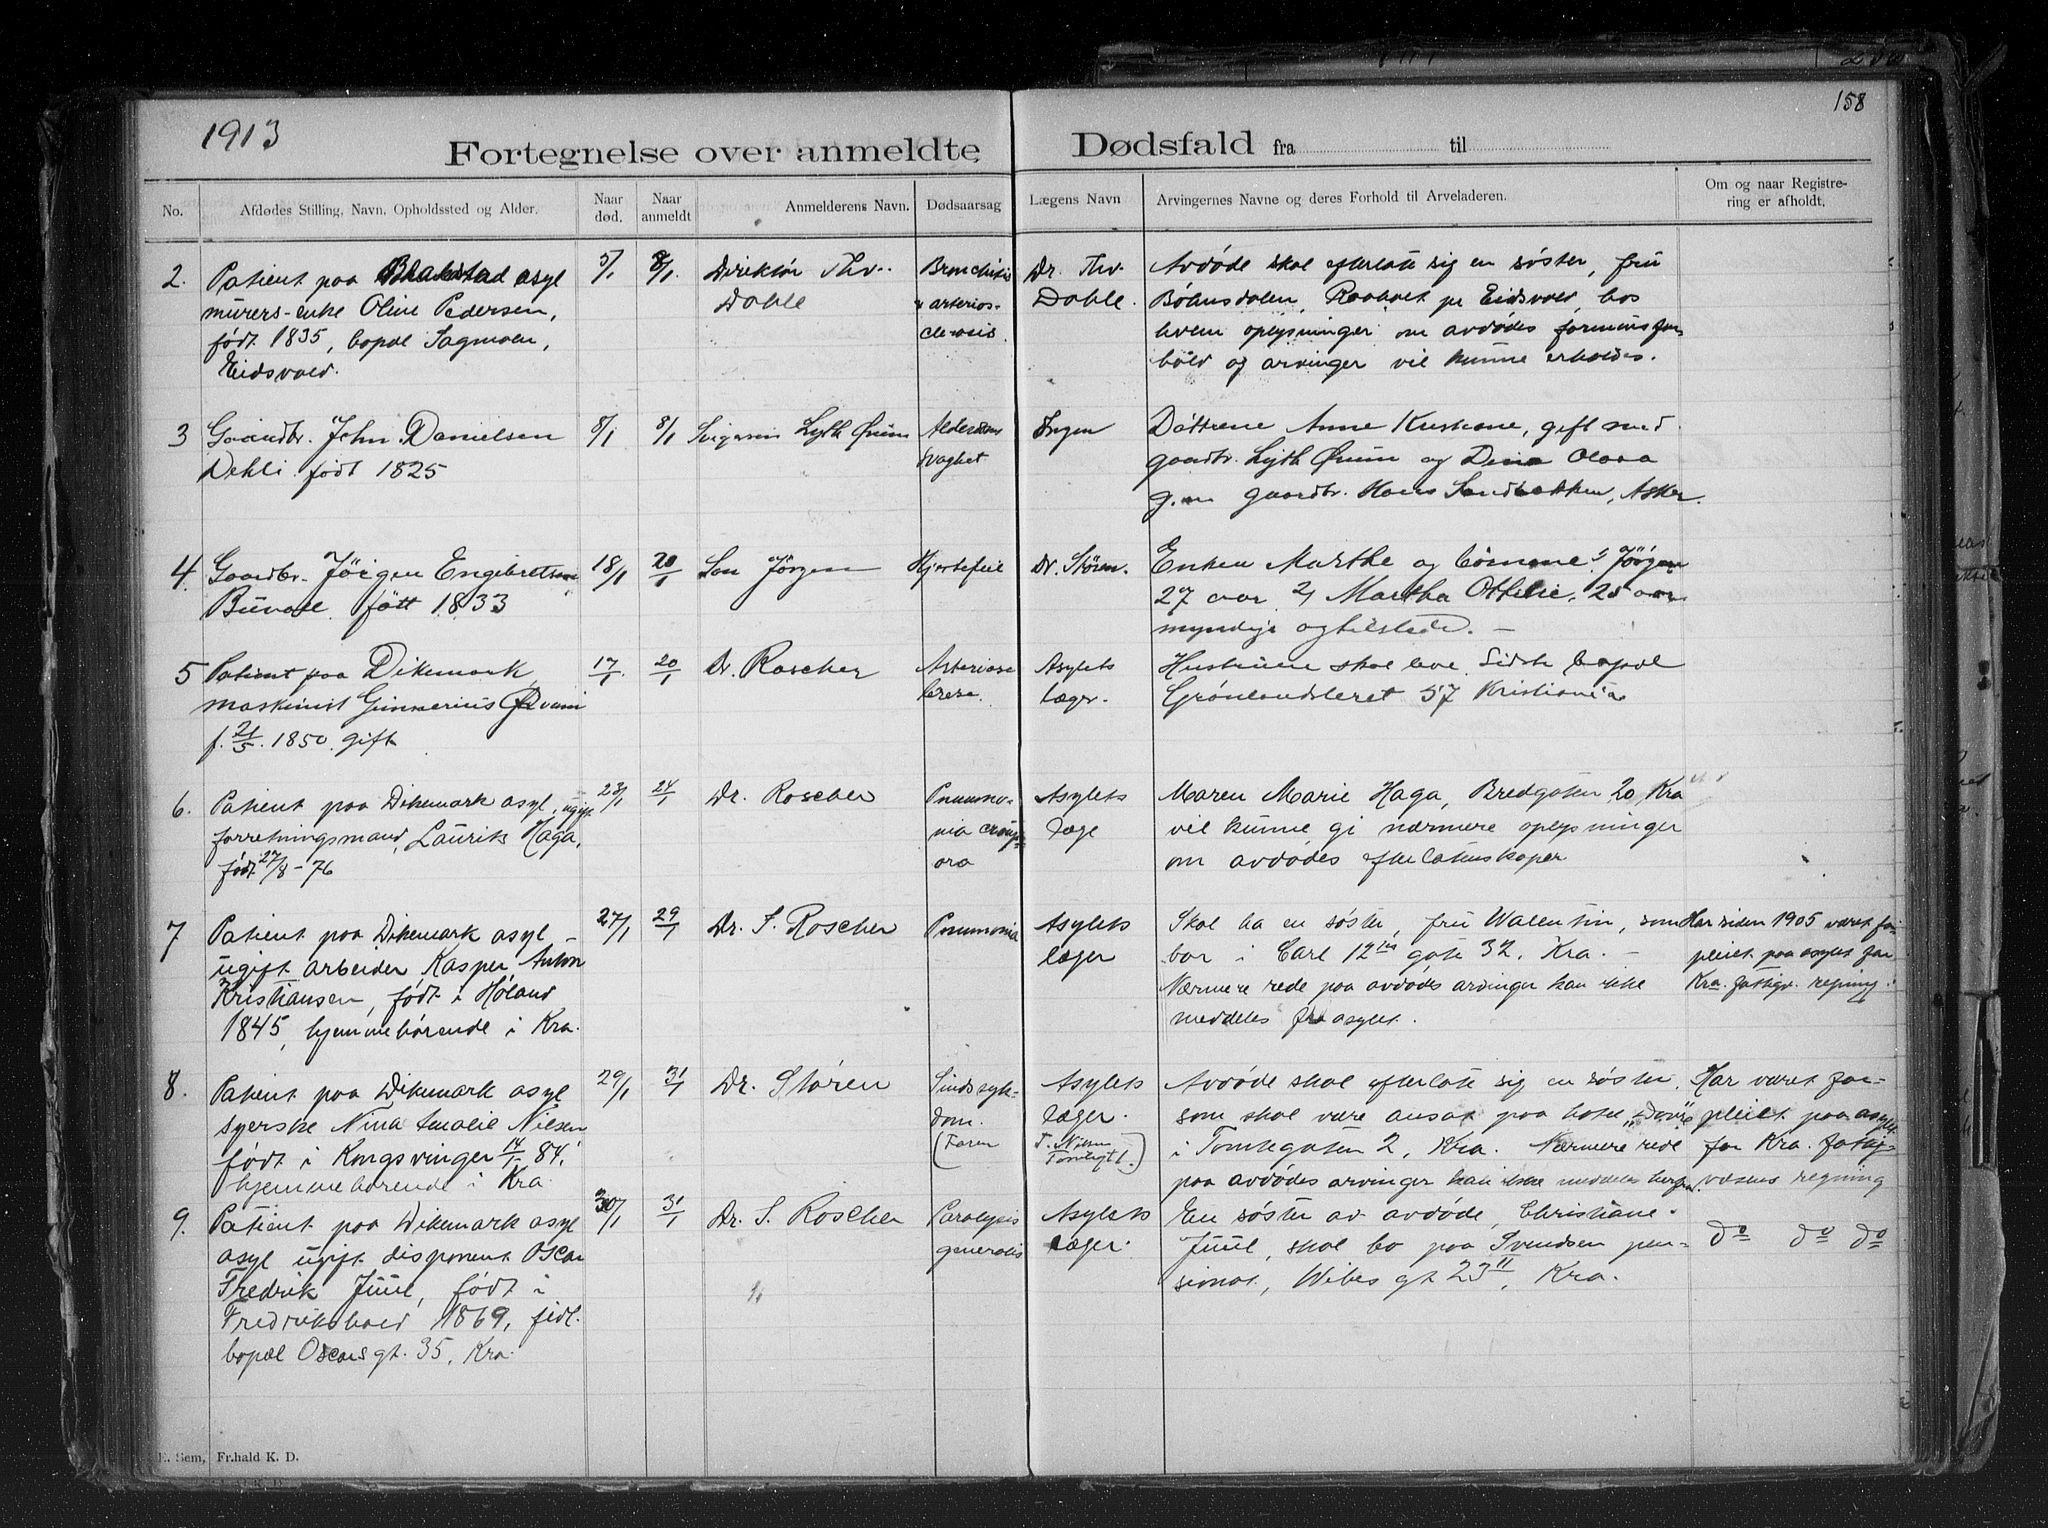 158
1913
Fortegnelse over anmeldte Dødsfald fra til
No.
Afdødes Stilling, Navn, Opholdssted og Alder.
Naar død.
Naar anmeldt
Anmelderens Navn.
Dødsaarsag
Lægens Navn
Arvingernes Navne og deres Forhold til Arveladeren.
Om og naar Registre-
ring er afholdt.
2.
Patient paa Blakstad asyl
murers-enke Olive Pedersen,
født 1835, bopæl Sagmoen,
Eidsvold.
5/1
8/1
Direktør Thv.
Dahle
Bronchitis
arterios-
clerosis
Dr. Thv.
Dahle.
Avdøde skal efterlate sig en søster, fru
Bøhnsdalen, Raaholt pr Eidsvold, hos
hvem oplysninger om avdødes formuesfor-
hold og arvinger vil kunne erholdes.
3
Gaardbr. John Danielsen
Dehli født 1825
8/1
8/1
Svigersøn Lyth Ørum
Alderdoms
svaghet
Ingen
Døttrene Anne Kristiane, gift med
gaardbr. Lyth Ørum og Dina Olava
g.m gaardbr. Hans Sandbakken, Asker.
4.
Gaardbr. Jörgen Engebretsen
Büvall født 1833
18/1
20/1
Søn Jörgen
Hjertefeil
Dr. Støren.
Enken Marthe og børnene: Jörgen
27 aar 2, Martha Othilie, 25 aar
myndige og tilstede. —
5
Patient paa Dikemark
maskinist Gunnerius
f. 21/5. 1850. gift
17/1.
20/1
Dr. Roscher
Asylets
læger.
Hustruen skal leve. Sidste bopæl
Grønlandsleret 57 Kristiania
6.
Patient paa Dikemark asyl, ugift
forretningsmand, Laurits Haga,
født 27/8-76
23/1
24/1
Dr. Roscher
Pneumo-
nia croup-
osa
Asylets
læge
Maren Marie Haga, Bredgaten 20 Kra
vil kunne gi nærmere oplysninger
om avdødes efterlatenskaper
7
Patient paa Dikemark asyl
ugift arbeider Kasper Anton
Kristiansen, født i Høland
1845, hjemmehørende i Kra.
27/1
29/1
Dr. S. Roscher
Pneumonia
Asylets
læger
Skal ha en søster, fru Walentin, som
bor i Carl 12tes gate 32, Kra. —
Nærmere rede paa avdødes arvinger kan ikke
meddeles fra asylet.
Har siden 1905 været for-
pleiet paa asylet for
Kra. fattigv. regning.
8.
Patient paa Dikemark asyl
syerske Nina Amalie Nielsen
født i Kongsvinger 14/1 84,
hjemmehørende i Kra.
29/1
31/1
Dr. Støren
Sindssyk-
dom.
(Faren
Asylets
læger.
T. Nilsen
Tomtegt 1.)
Avdøde skal efterlate sig en søster,
som skal være ansat paa hotel
i Tomtegaten 2, Kra. Nærmere rede
paa avdødes arvinger kan ikke meddeles herfra.
Har været for-
pleiet paa asylet
for Kra. fattig-
væsens regning
9.
Patient paa Dikemark asyl
asyl ugift disponent Oscar
Fredrik Juul, født i
Fredrikshald 1869, sidt.
bopæl Oscarsgt. 35, Kra.
30/1
31/1
Dr. S. Roscher
Paralysis
generalis
Asylets
læger.
En søster av avdøde, Christiane
Juul, skal bo paa Svendsen pen-
sionat, Wibes gt 23 II, Kra.
do do do
E. Sem, Fr.hald K. D.